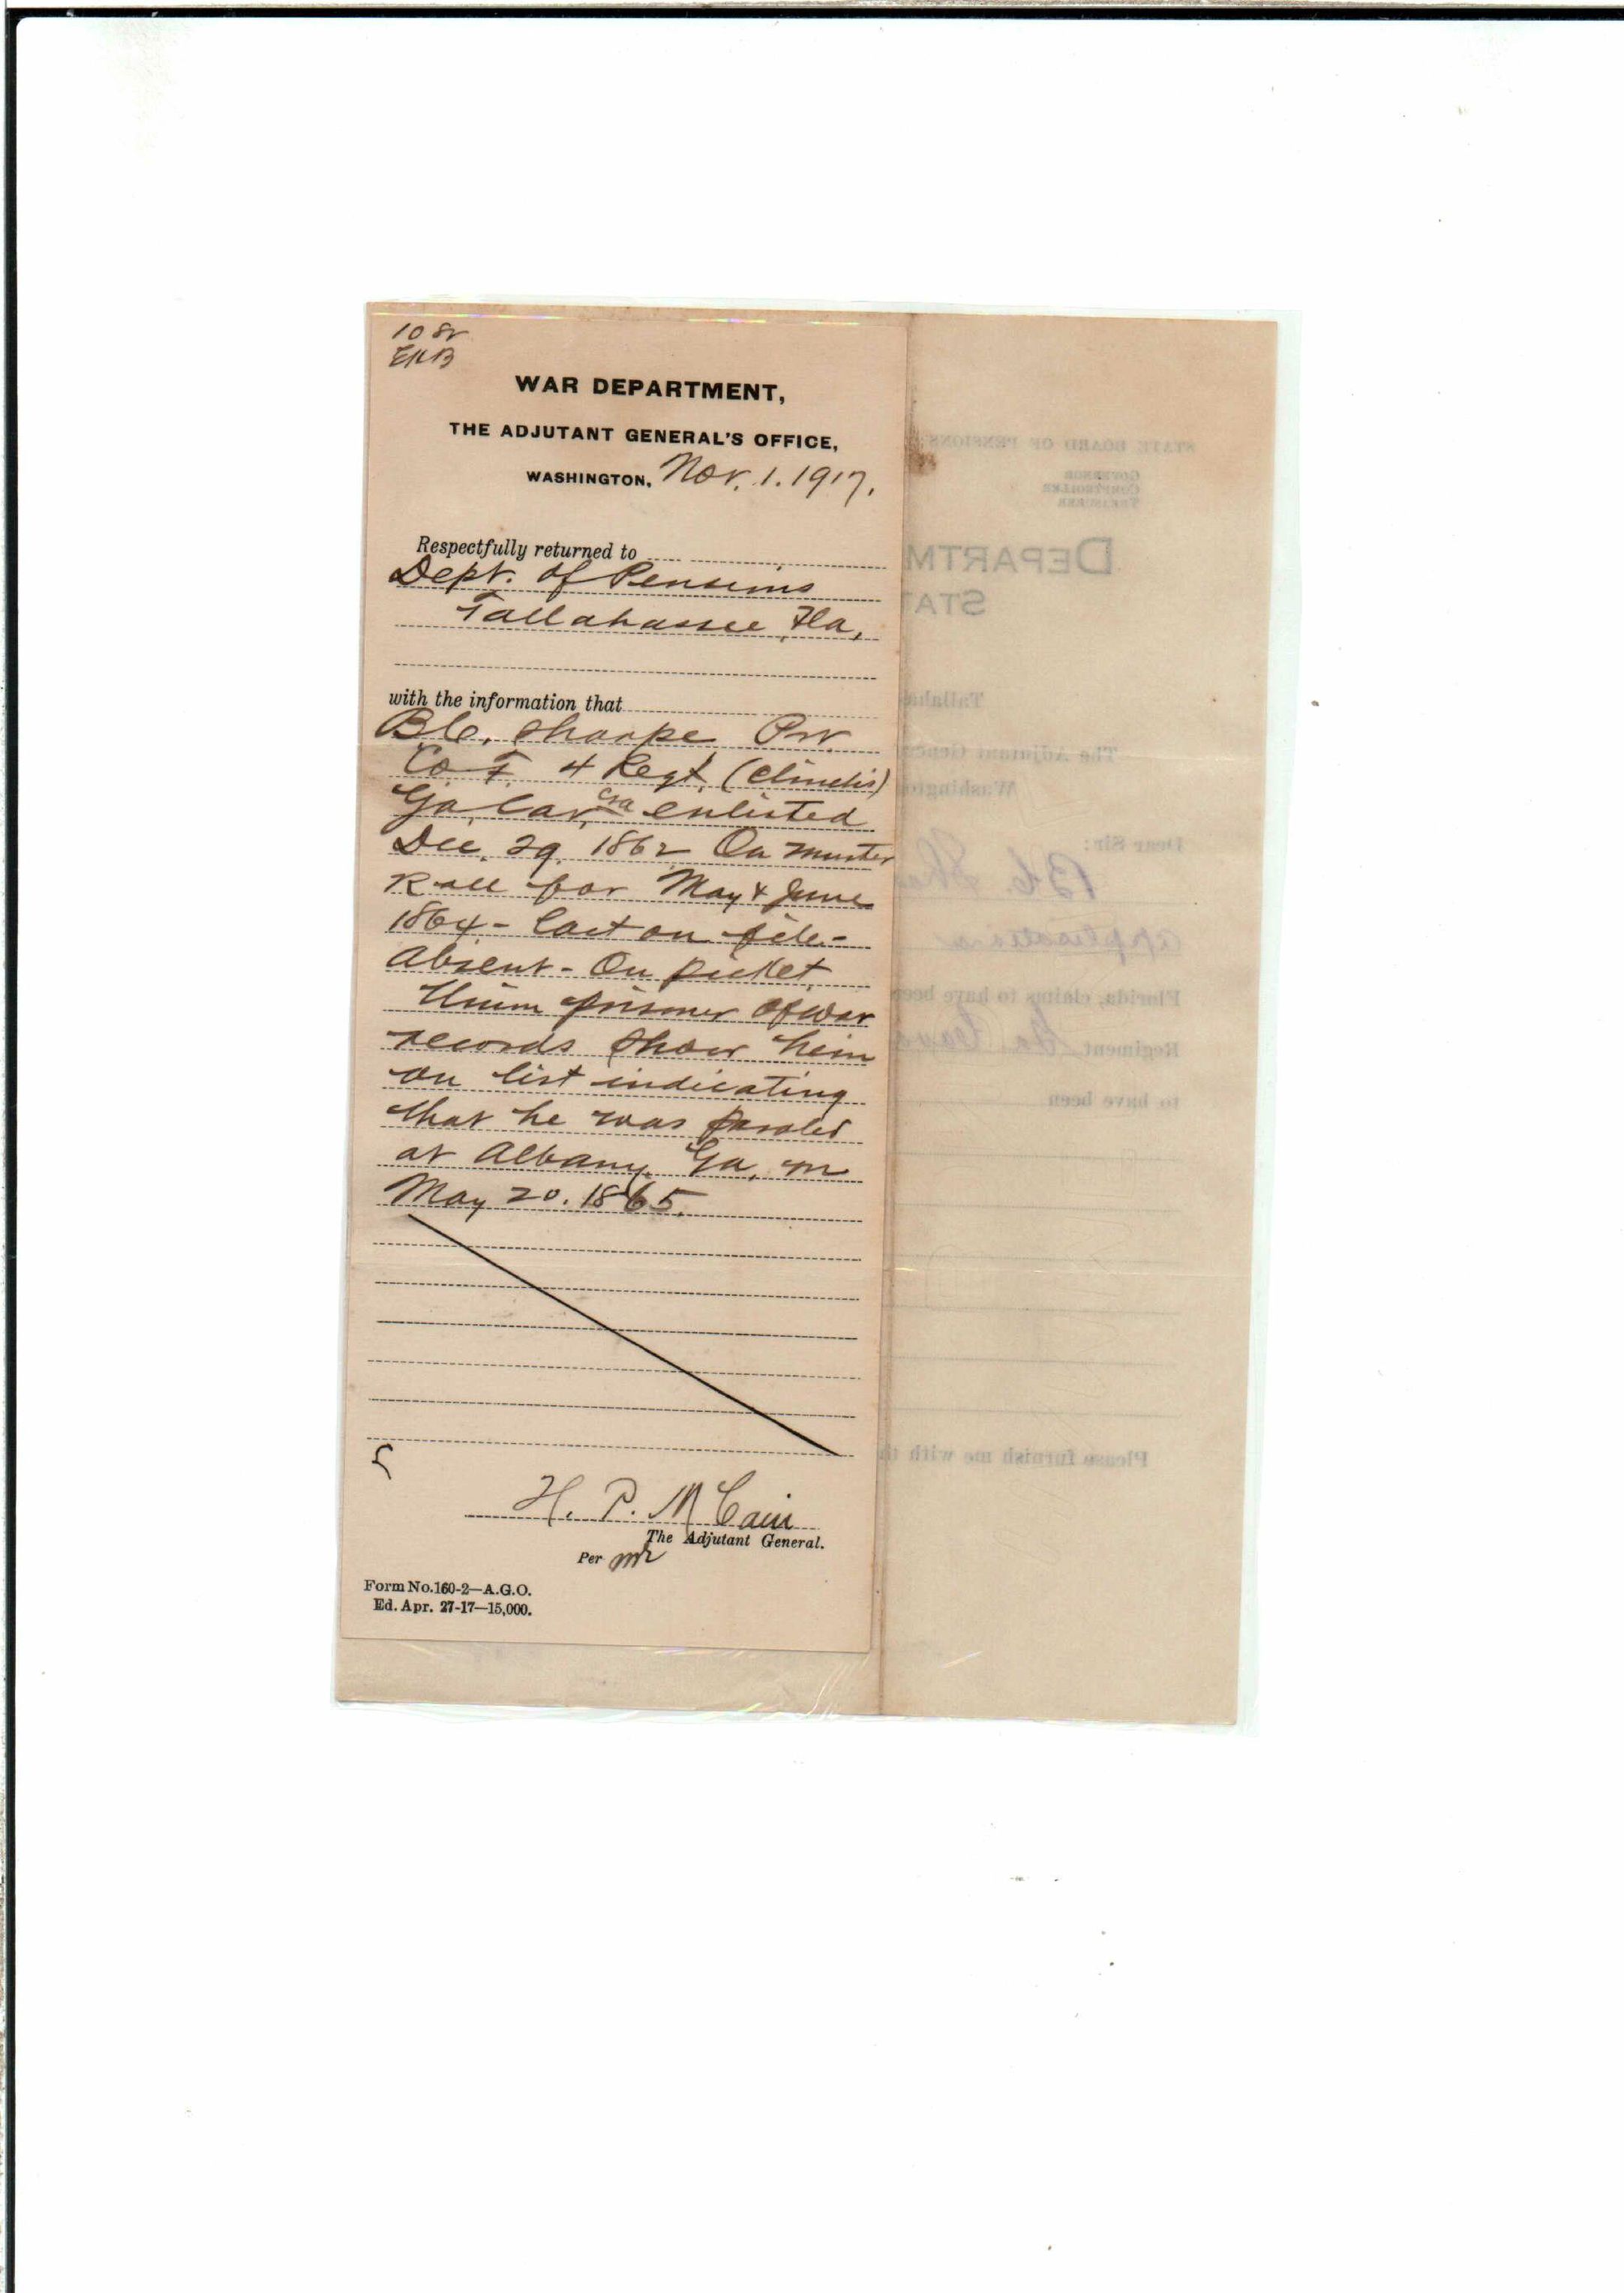 10 Sr
EHB
WAR DEPARTMENT,
THE ADJUTANT GENERAL'S OFFICE,
WASHINGTON, Nov. 1. 1917.
Respectfully returned to
Dept. of Pensions
Tallahassee, Fla,
with the information that
B C. Sharpe Pvt.
Co F. 4 Regt. (Clinch's)
Ga Cav, csa enlisted
Dec. 29. 1862 On muster
Roll for May & June
1864 - last on file -
Absent - On picket.
Union prisoner of war
records show him
on list indicating
that he was paroled
at Albany, Ga, on
May 20. 1865.
H. P. McCain
The Adjutant General.
Per
Form No. 160-2—A.G.O.
Ed. Apr. 27-17—15,000.
STATE BOARD OF PENSIONS
GOVERNOR
COMPTROLLER
TREASURER
DEPARTM
STAT
Tallaha
The Adjutant Gener
Washington
Dear Sir:
B C. Sha
application
Florida, claims to have been
Regiment Ga. Cava
to have been
Please furnish me with th